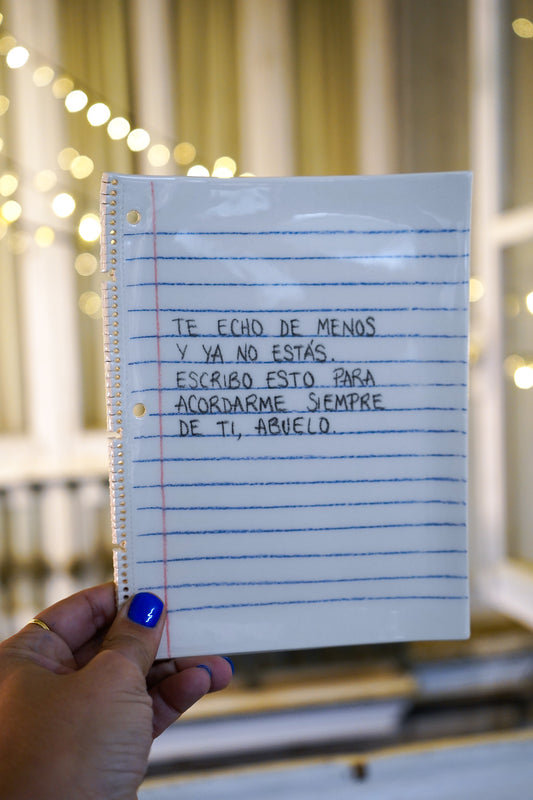 TE ECHO DE MENOS
Y YA NO ESTÁS.
ESCRIBO ESTO PARA
ACORDARME SIEMPRE
DE TI, ABUELO.